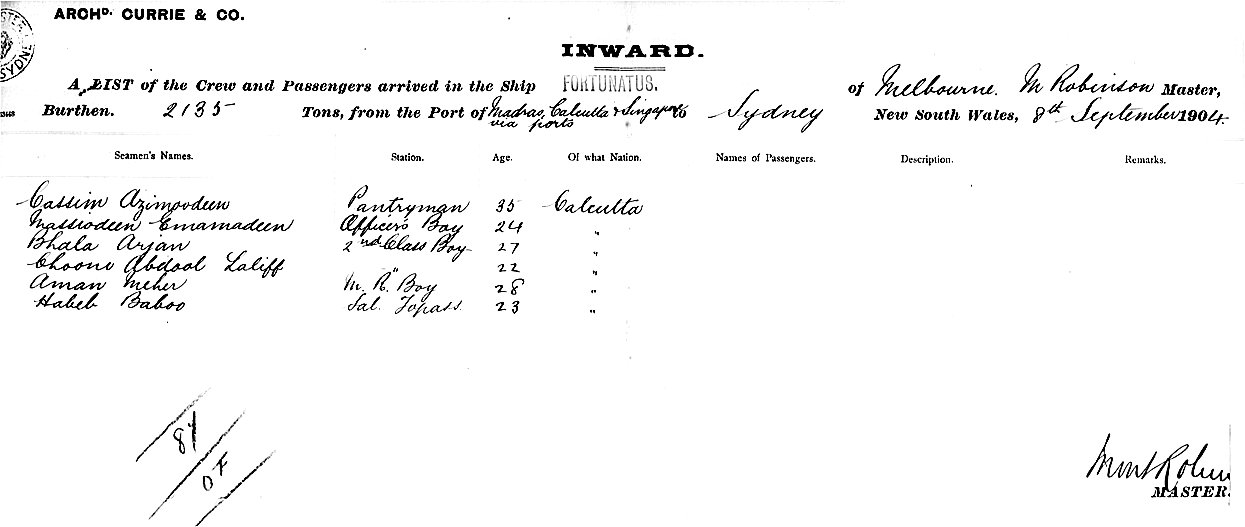 ARCHD. CURRIE & CO.
SYDNE
INWARD.
A LIST of the Crew and Passengers arrived in the Ship FORTUNATUS. of Melbourne. M Robinson Master,
Burthen. 2135 Tons, from the Port of Madras, Calcutta & Singapore via ports to Sydney New South Wales, 8th September 1904.
Seamen's Names. Station. Age. Of what Nation. Names of Passengers. Description. Remarks.
Cassim Azimoodeen Pantryman 35 Calcutta
Massiodeen Emamadeen Officers Boy 24 "
Bhala Arjan 2nd Class Boy 27 "
Choone Abdool Laliff 22 "
Aman Meher M. R. Boy 28 "
Habeb Baboo Sal. Topass. 23 "
81
OF
MASTER.